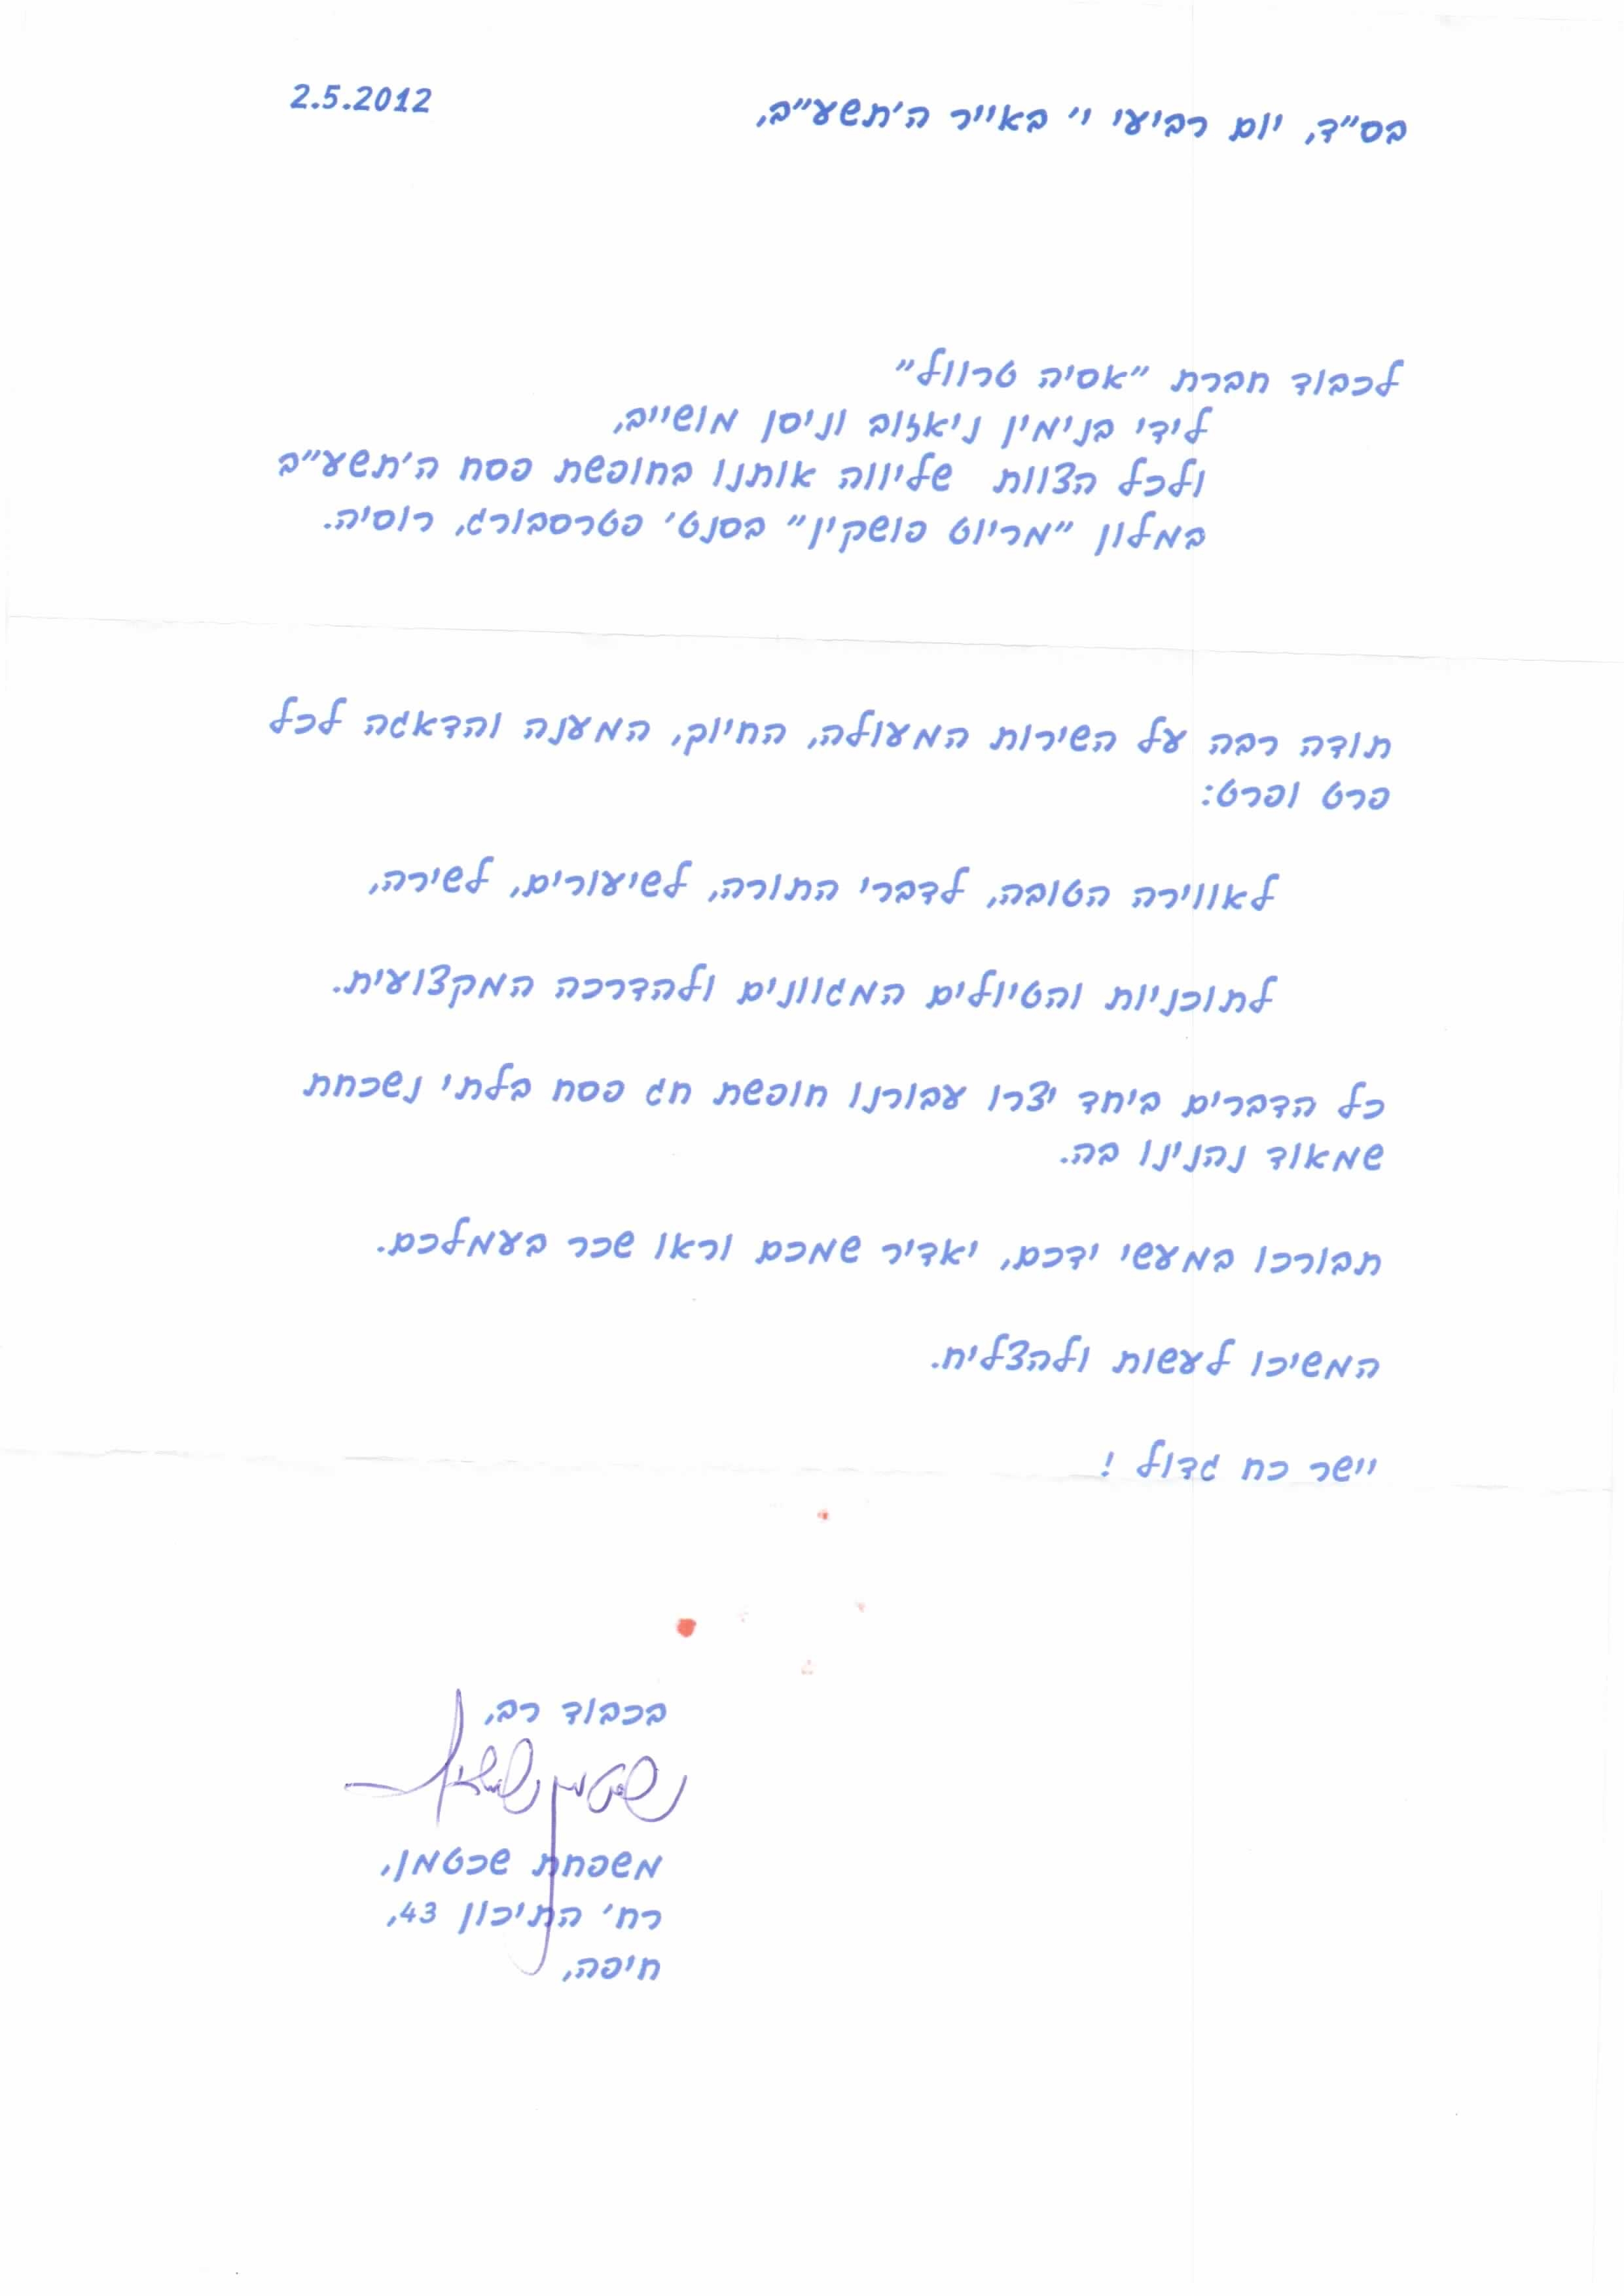 בס"ד, יום רביעי י' באייר ה'תשע"ב, 2.5.2012
לכבוד חברת "אסיה טרוול"
לידי בנימין ניאזוב וניסן מושייב,
ולכל הצוות שליווה אותנו בחופשת פסח ה'תשע"ב
במלון "מריוט פושקין" בסנט' פטרסבורג, רוסיה.
תודה רבה על השירות המעולה, החיוך, המענה והדאגה לכל
פרט ופרט:
לאווירה הטובה, לדברי התורה, לשיעורים, לשירה,
לתוכניות והטיולים המגוונים ולהדרכה המקצועית.
כל הדברים ביחד יצרו עבורנו חופשת חג פסח בלתי נשכחת
שמאוד נהנינו בה.
תבורכו במעשי ידכם, יאדיר שמכם וראו שכר בעמלכם.
המשיכו לעשות ולהצליח.
יישר כח גדול !
בכבוד רב,
משפחת שכטמן,
רח' התיכון 43,
חיפה,